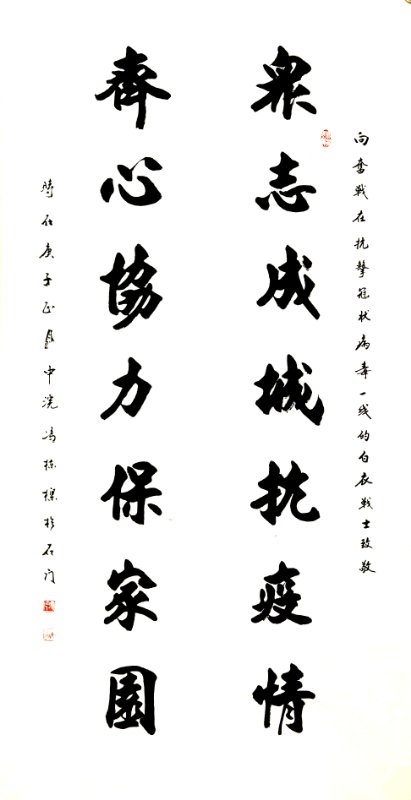 向奮戰在抗擊冠狀病毒一线的白衣戰士致敬
眾志成城抗疫情
齊心協力保家園
時在庚子正月中浣馮栋樑於石门